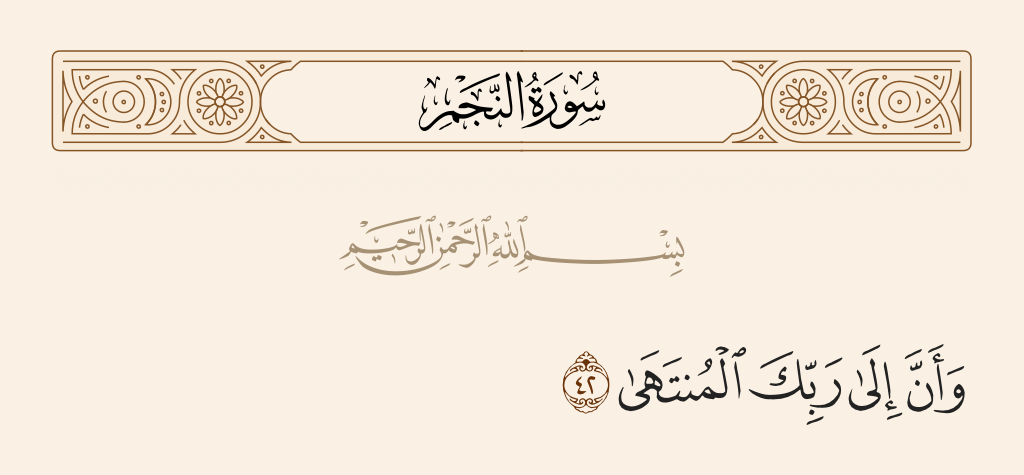 سُورَةُ النَّجْمِ
بِسْمِ ٱللَّهِ ٱلرَّحْمَٰنِ ٱلرَّحِيمِ
وَأَنَّ إِلَىٰ رَبِّكَ ٱلْمُنتَهَىٰ ٤٢